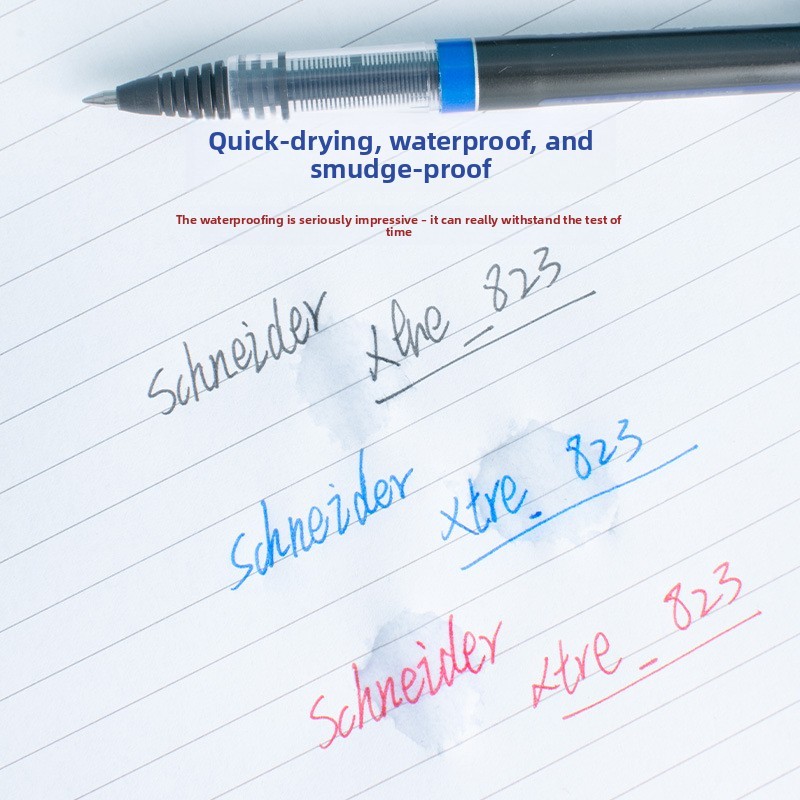 Quick-drying, waterproof, and
smudge-proof
The waterproofing is seriously impressive – it can really withstand the test of
time
Schneider xtre_823
Schneider xtre_823
Schneider xtre_823